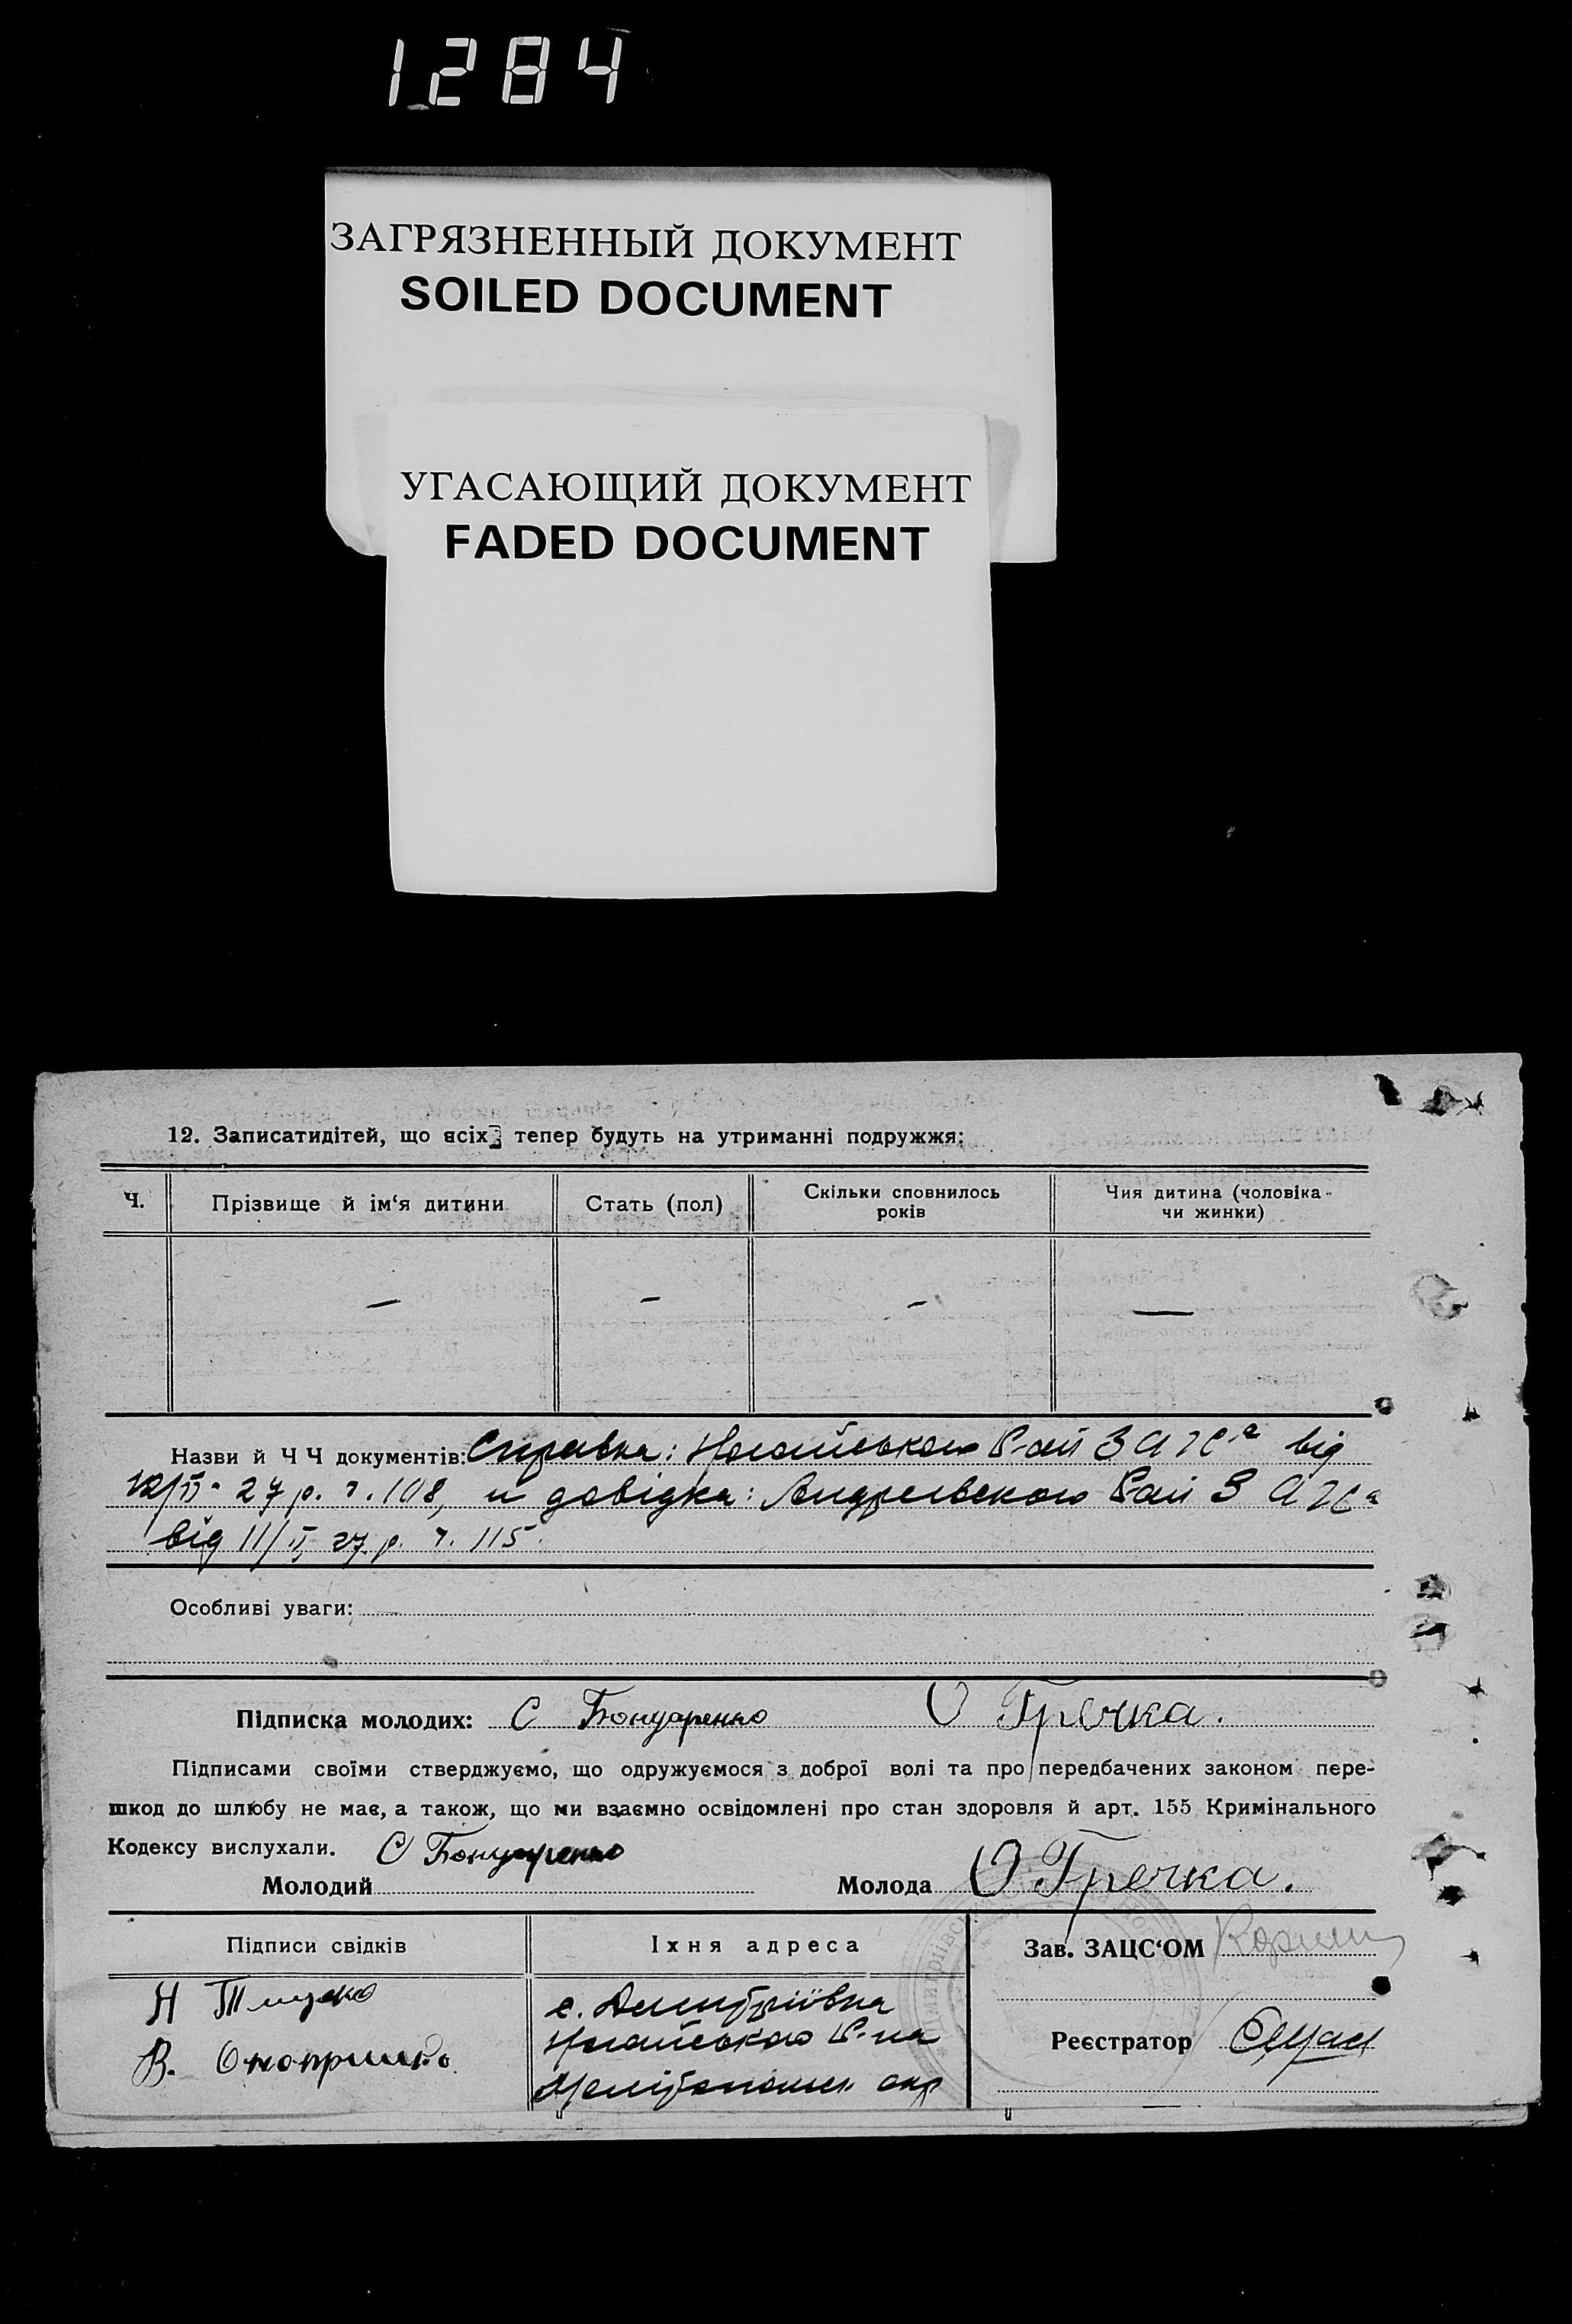 1284
ЗАГРЯЗНЕННЫЙ ДОКУМЕНТ
SOILED DOCUMENT
УГАСАЮЩИЙ ДОКУМЕНТ
FADED DOCUMENT
12. Записатидітей, що всіх тепер будуть на утриманні подружжя:
Ч.
Прізвище й ім‘я дитини
Стать (пол)
Скільки сповнилось
років
Чия дитина (чоловіка-
чи жинки)
— — — —
Назви й Ч Ч документів: Справка: Ногайського Рай ЗАГС-а від
12/II- 27 р. ч. 108, и довідка: Андрівского Рай ЗАГСа
від 11/II 27 р. ч. 115.
Особливі уваги: —
Підписка молодих: С Бондаренко О Гречка.
Підписами своїми стверджуємо, що одружуємося з доброї волі та про передбачених законом пере-
шкод до шлюбу не має, а також, що ми взаємно освідомлені про стан здоровля й арт. 155 Кримінального
Кодексу вислухали. С Бондаренко
Молодий
Молода О Гречка.
Підписи свідків
Н
В. Оноприенко
Їхня адреса
с. Дмитріївка
Ногайського Р-на
Мелітопольськ. окр
Зав. ЗАЦС‘ОМ
Реєстратор